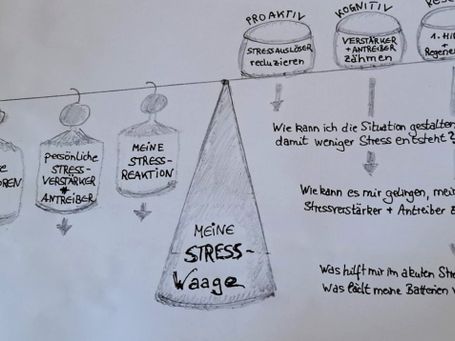 PROAKTIV
STRESSAUSLÖSER
reduzieren
KOGNITIV
VERSTÄRKER
+ ANTREIBER
zähmen
1. Hil
+
Regene
OREN
persönliche
STRESS-
VERSTÄRKER
+
ANTREIBER
MEINE
STRESS-
REAKTION
MEINE
STRESS-
Waage
Wie kann ich die Situation gestalten,
damit weniger Stress entsteht?
Wie kann es mir gelingen, mei
Stressverstärker + Antreiber z
Was hilft mir im akuten Stre
Was lädt meine Batterien